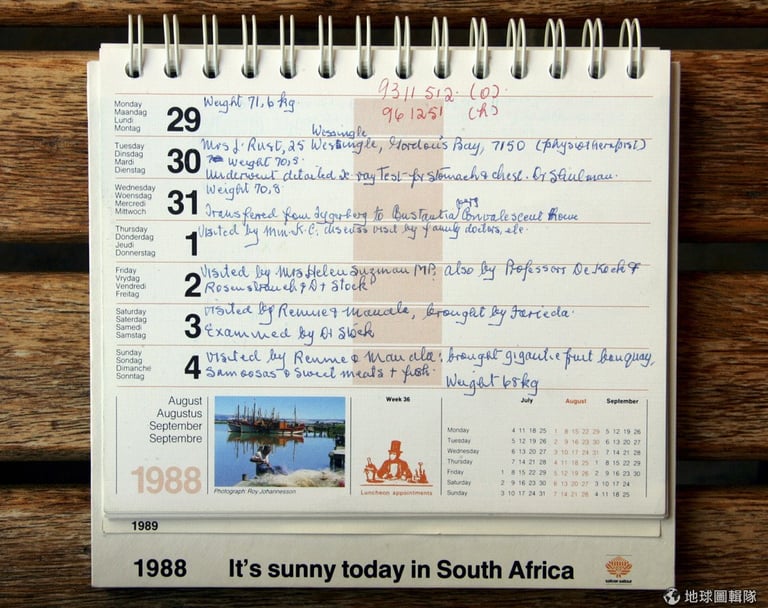 9311 512 (o)
961251 (h)
Monday
Maandag
Lundi
Montag
29
Weight 71,6 kg.
Wessingle
Tuesday
Dinsdag
Mardi
Dienstag
30
Mrs J. Rust, 25 Wessingle, Gordon's Bay, 7150 (physiotherapist)
Weight 70,8
Underwent detailed x-ray Test for stomach & chest. Dr
Wednesday
Woensdag
Mercredi
Mittwoch
31
Weight 70,8
Transfered from Tygerberg to Constantia Convalescent Home
Thursday
Donderdag
Jeudi
Donnerstag
1
Visited by Min. K.C. discuss visit by family doctors, etc.
Friday
Vrydag
Vendredi
Freitag
2
Visited by Mrs Helen Suzman MP. also by Professors De Kock &
& Dr Stock
Saturday
Saterdag
Samedi
Samstag
3
Visited by Rennie & Mandla, brought by Farieda.
Examined by Dr Stock
Sunday
Sondag
Dimanche
Sonntag
4
Visited by Rennie & Mandla: brought gigantic fruit bouquay,
Samoosas & sweet meats & fish.
Weight 68 kg
August
Augustus
September
Septembre
1988
Photograph: Roy Johannesson
Week 36
Luncheon appointments
July August September
Monday 4 11 18 25 1 8 15 22 29 5 12 19 26
Tuesday 5 12 19 26 2 9 16 23 30 6 13 20 27
Wednesday 6 13 20 27 3 10 17 24 31 7 14 21 28
Thursday 7 14 21 28 4 11 18 25 1 8 15 22 29
Friday 1 8 15 22 29 5 12 19 26 2 9 16 23 30
Saturday 2 9 16 23 30 6 13 20 27 3 10 17 24
Sunday 3 10 17 24 31 7 14 21 28 4 11 18 25
1989
1988 It's sunny today in South Africa
satour
地球圖輯隊